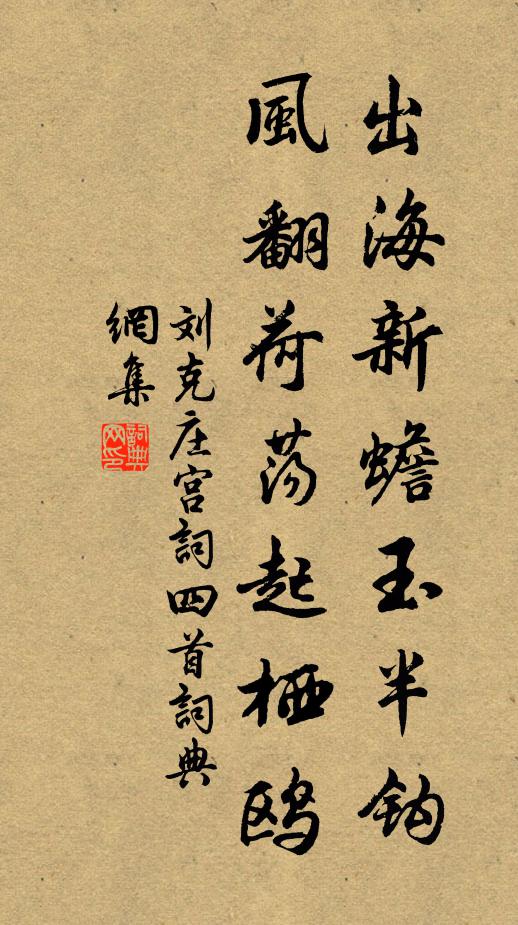 出海新蟾玉半钩
風翻荷荡起栖鸥
刘克庄宫詞四首詞典
網集
詞典
网印